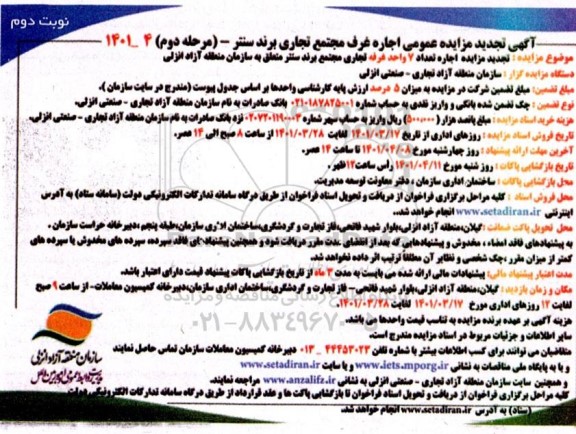 نوبت دوم
آگهی تجدید مزایده عمومی اجاره غرف مجتمع تجاری برند سنتر - (مرحله دوم) ۴ _۱۴۰۱
موضوع مزایده : تجدید مزایده اجاره تعداد ۷ واحد غرفه تجاری مجتمع برند سنتر متعلق به سازمان منطقه آزاد انزلی
دستگاه مزایده گزار : سازمان منطقه آزاد تجاری - صنعتی انزلی
مبلغ تضمین: مبلغ تضمین شرکت در مزایده به میزان ۵ درصد ارزش پایه کارشناسی واحدها بر اساس جدول پیوست (مندرج در سایت سازمان ).
نوع تضمین : چک تضمین شده بانکی و واریز نقدی به حساب شماره ۰۲۱۰۱۸۷۸۲۵۰۰۱ بانک صادرات به نام سازمان منطقه آزاد تجاری - صنعتی انزلی.
هزینه خرید اسناد مزایده : مبلغ پانصد هزار (۵۰۰۰۰۰) ریال واریز به حساب شماره ۰۲۰۷۲۰۱۱۹۰۰۰۳ نزد بانک صادرات به نام سازمان منطقه آزاد تجاری - صنعتی انزلی.
تاریخ فروش اسناد مزایده : روزهای اداری از تاریخ ۱۴۰۱/۰۳/۱۷ لغایت ۱۴۰۱/۰۳/۲۸ از ساعت ۸ صبح الی ۱۴ عصر.
آخرین مهلت ارائه پیشنهاد : روز چهارشنبه مورخ ۱۴۰۱/۰۴/۰۸ تا ساعت ۱۴ عصر.
تاریخ بازگشایی پاکات : روز شنبه مورخ ۱۴۰۱/۰۴/۱۱ رأس ساعت ۱۲ ظهر
محل بازگشایی پاکات : ساختمان اداری سازمان - دفتر معاونت توسعه مدیریت.
محل فروش اسناد : کلیه مراحل برگزاری فراخوان از دریافت و تحویل اسناد فراخوان از طریق درگاه سامانه تدارکات الکترونیکی دولت (سامانه ستاد) به آدرس
اینترنتی www.setadiran.ir انجام خواهد شد.
محل تحویل پاکت ضمانت : گیلان،منطقه آزاد انزلی،بلوار شهید قانحی،فاز تجارت و گردشگری،ساختمان اداری سازمان،طبقه پنجم ،دبیرخانه حراست سازمان .
به پیشنهادهای فاقد امضاء ، مخدوش و پیشنهادهایی که بعد از انقضای مدت مقرر دریافت شود و همچنین پیشنهاد های فاقد سپرده، سپرده های مخدوش یا سپرده های
کمتر از میزان مقرر ،چک شخصی و نظایر آن مطلقاً ترتیب اثر داده نخواهد شد.
مدت اعتبار پیشنهاد مالی: پیشنهادات مالی ارائه شده می بایست به مدت ۳ ماه از تاریخ بازگشایی پاکات پیشنهاد قیمت دارای اعتبار باشد.
مکان و زمان بازدید : گیلان،منطقه آزاد انزلی،بلوار شهید قانحی- فاز تجارت و گردشگری،ساختمان اداری سازمان،دبیرخانه کمیسیون معاملات- از ساعت ۹ صبح
لغایت ۱۲ روزهای اداری مورخ ۱۴۰۱/۰۳/۱۷ لغایت ۱۴۰۱/۰۳/۲۸.
هزینه آگهی بر عهده برنده مزایده به تناسب قیمت واحدها می باشد.
سایر اطلاعات و جزئیات مربوط در اسناد مزایده مندرج است.
متقاضیان می توانند برای کسب اطلاعات بیشتر با شماره تلفن ۴۴۴۵۳۰۲۳ _۰۱۳ دبیرخانه کمیسیون معاملات سازمان تماس حاصل نمایند
و یا به پایگاه ملی مناقصات به نشانی www.iets.mporg.ir و یا سایت www.setadiran.ir
و همچنین سایت سازمان منطقه آزاد تجاری - صنعتی انزلی به نشانی www.anzalifz.ir مراجعه نمایند.
کلیه مراحل برگزاری فراخوان از دریافت و تحویل اسناد فراخوان تا بازگشایی پاکت ها و عقد قرارداد از طریق درگاه سامانه تدارکات الکترونیکی دولت
(ستاد) به آدرس www.setadiran.ir انجام خواهد شد.
سازمان منطقه آزاد انزلی
۰۲۱-۸۸۳۴۹۶۷۰-۵